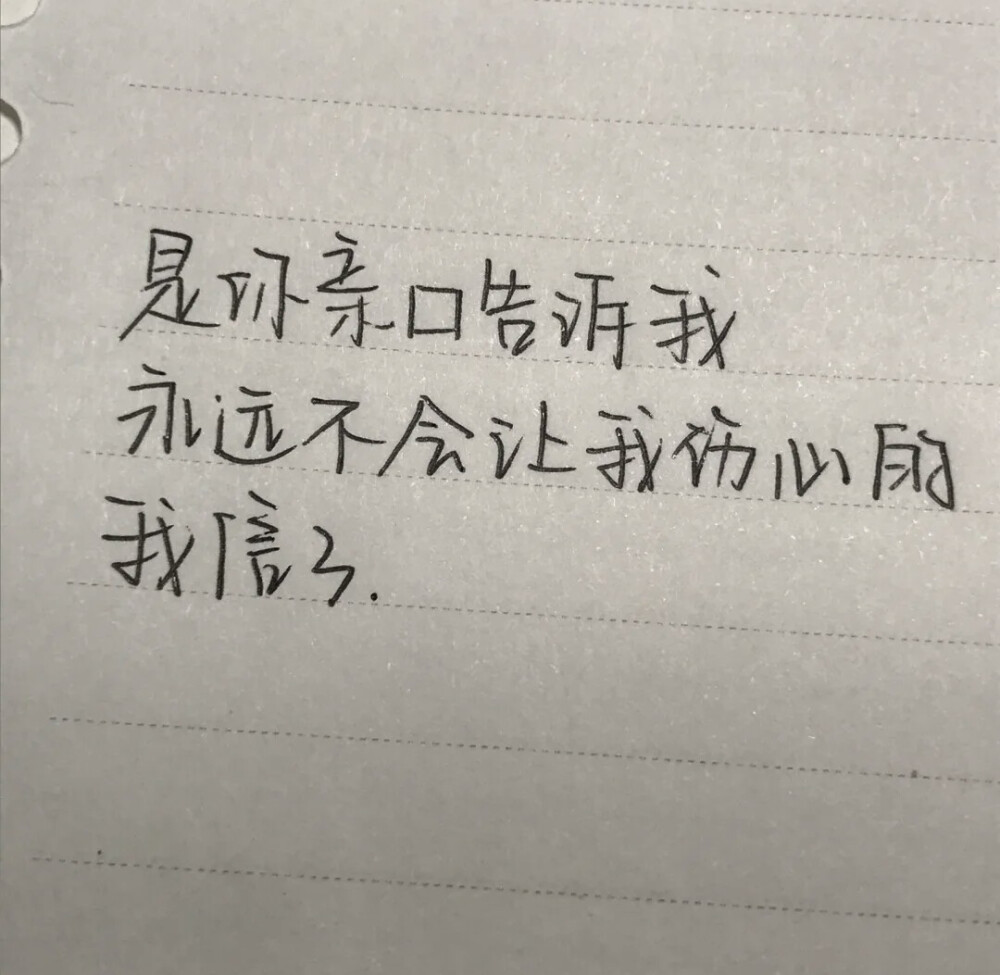 是你亲口告诉我
永远不会让我伤心的
我信了.